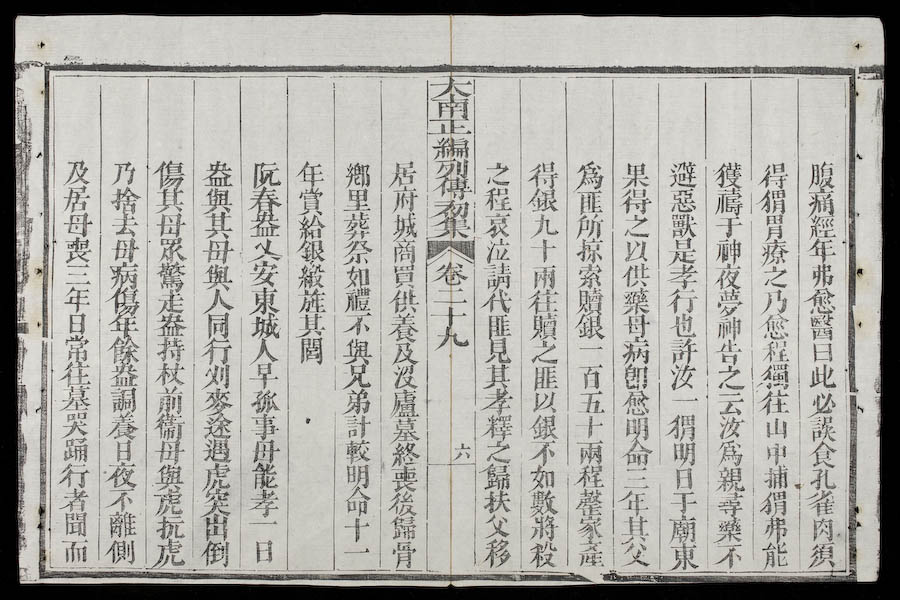 腹痛經年弗愈醫曰此必誤食孔雀肉須
得猬胃療之乃愈程獨往山中捕猬弗能
獲禱于神夜夢神告之云汝爲親尋藥不
避惡獸是孝行也許汝一猬明日于廟東
果得之以供藥母病卽愈明命三年其父
爲匪所掠索贖銀一百五十兩程罄家產
得銀九十兩往贖之匪以銀不如數將殺
之程哀泣請代匪見其孝釋之歸扶父移
大南正編列傳初集
卷二十九
六
居府城商買供養及沒廬墓終喪後歸骨
鄉里葬祭如禮不與兄弟計較明命十一
年賞給銀緞旌其閭
阮春盎乂安東城人早孤事母能孝一日
盎與其母與人同行刈麥途遇虎突出倒
傷其母眾驚走盎持杖前衞母與虎抗虎
乃捨去母病傷年餘盎調養日夜不離側
及居母喪三年日常往墓哭踊行者聞而